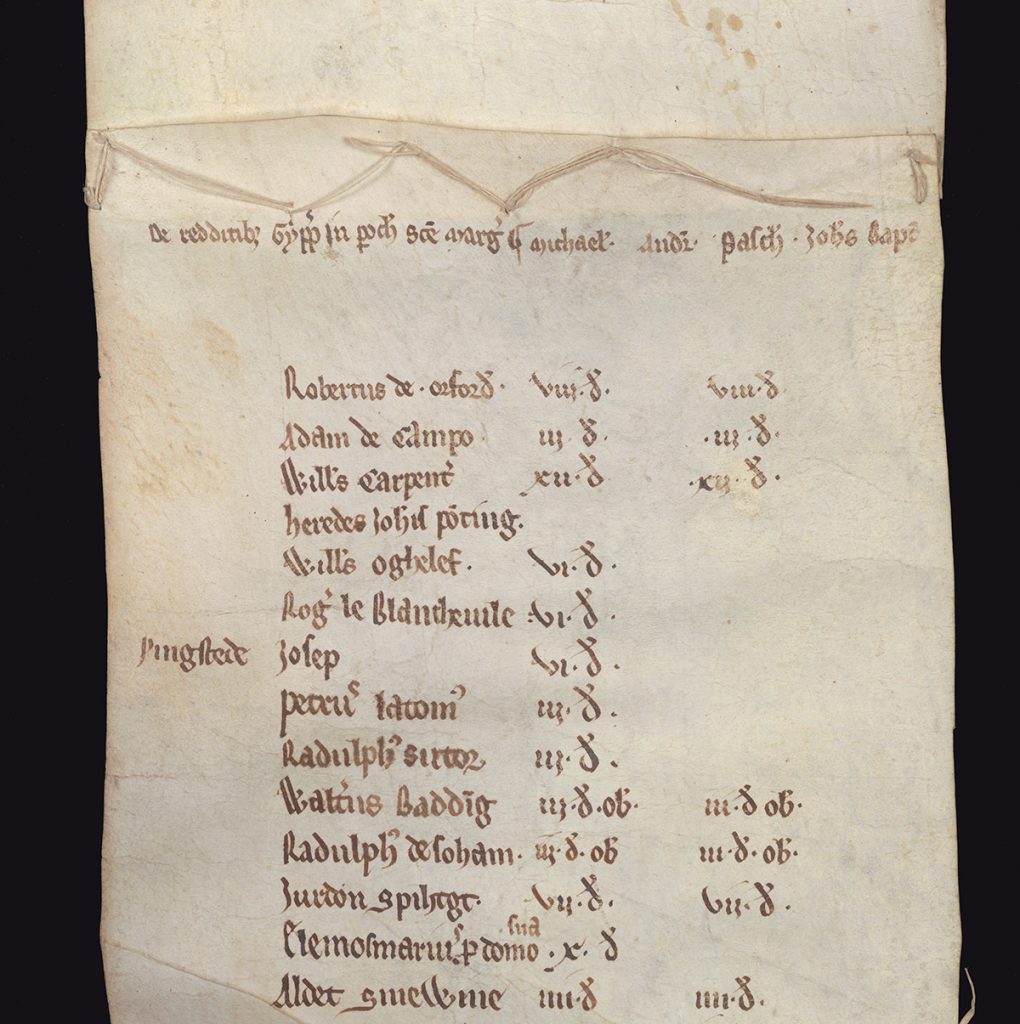 De redditibȝ Gypp̄ in poch̄ Sc̄e Marg̕ ¶ Michael̕. Andr̄. Pasch̄. Joh̄s Bapt̄
Robertus de. orford̄. viij. d̄. viij. d̄
Adam de Campo. iij. d̄. .iij. d̄.
Will̄s Carpent̕ xij. d̄ .xij. d̄.
heredes Joh̄is
Will̄s oghelef. vj. d̄.
Rog̕ le vj. d̄.
Josep vj. d̄.
petrus latom̕ iij. d̄.
Radulph̕ iij. d̄.
Walt̕us Badd̄ig iij. d̄. ob̄. iij. d̄ ob̄.
Radulph̕ de soham. iij. d̄. ob̄ iij. d̄. ob̄.
Jurdon vij. d̄. vij. d̄.
Elemosinarius p̱ domo sua. x. d̄
Aldet iiij. d̄ iiij. d̄.